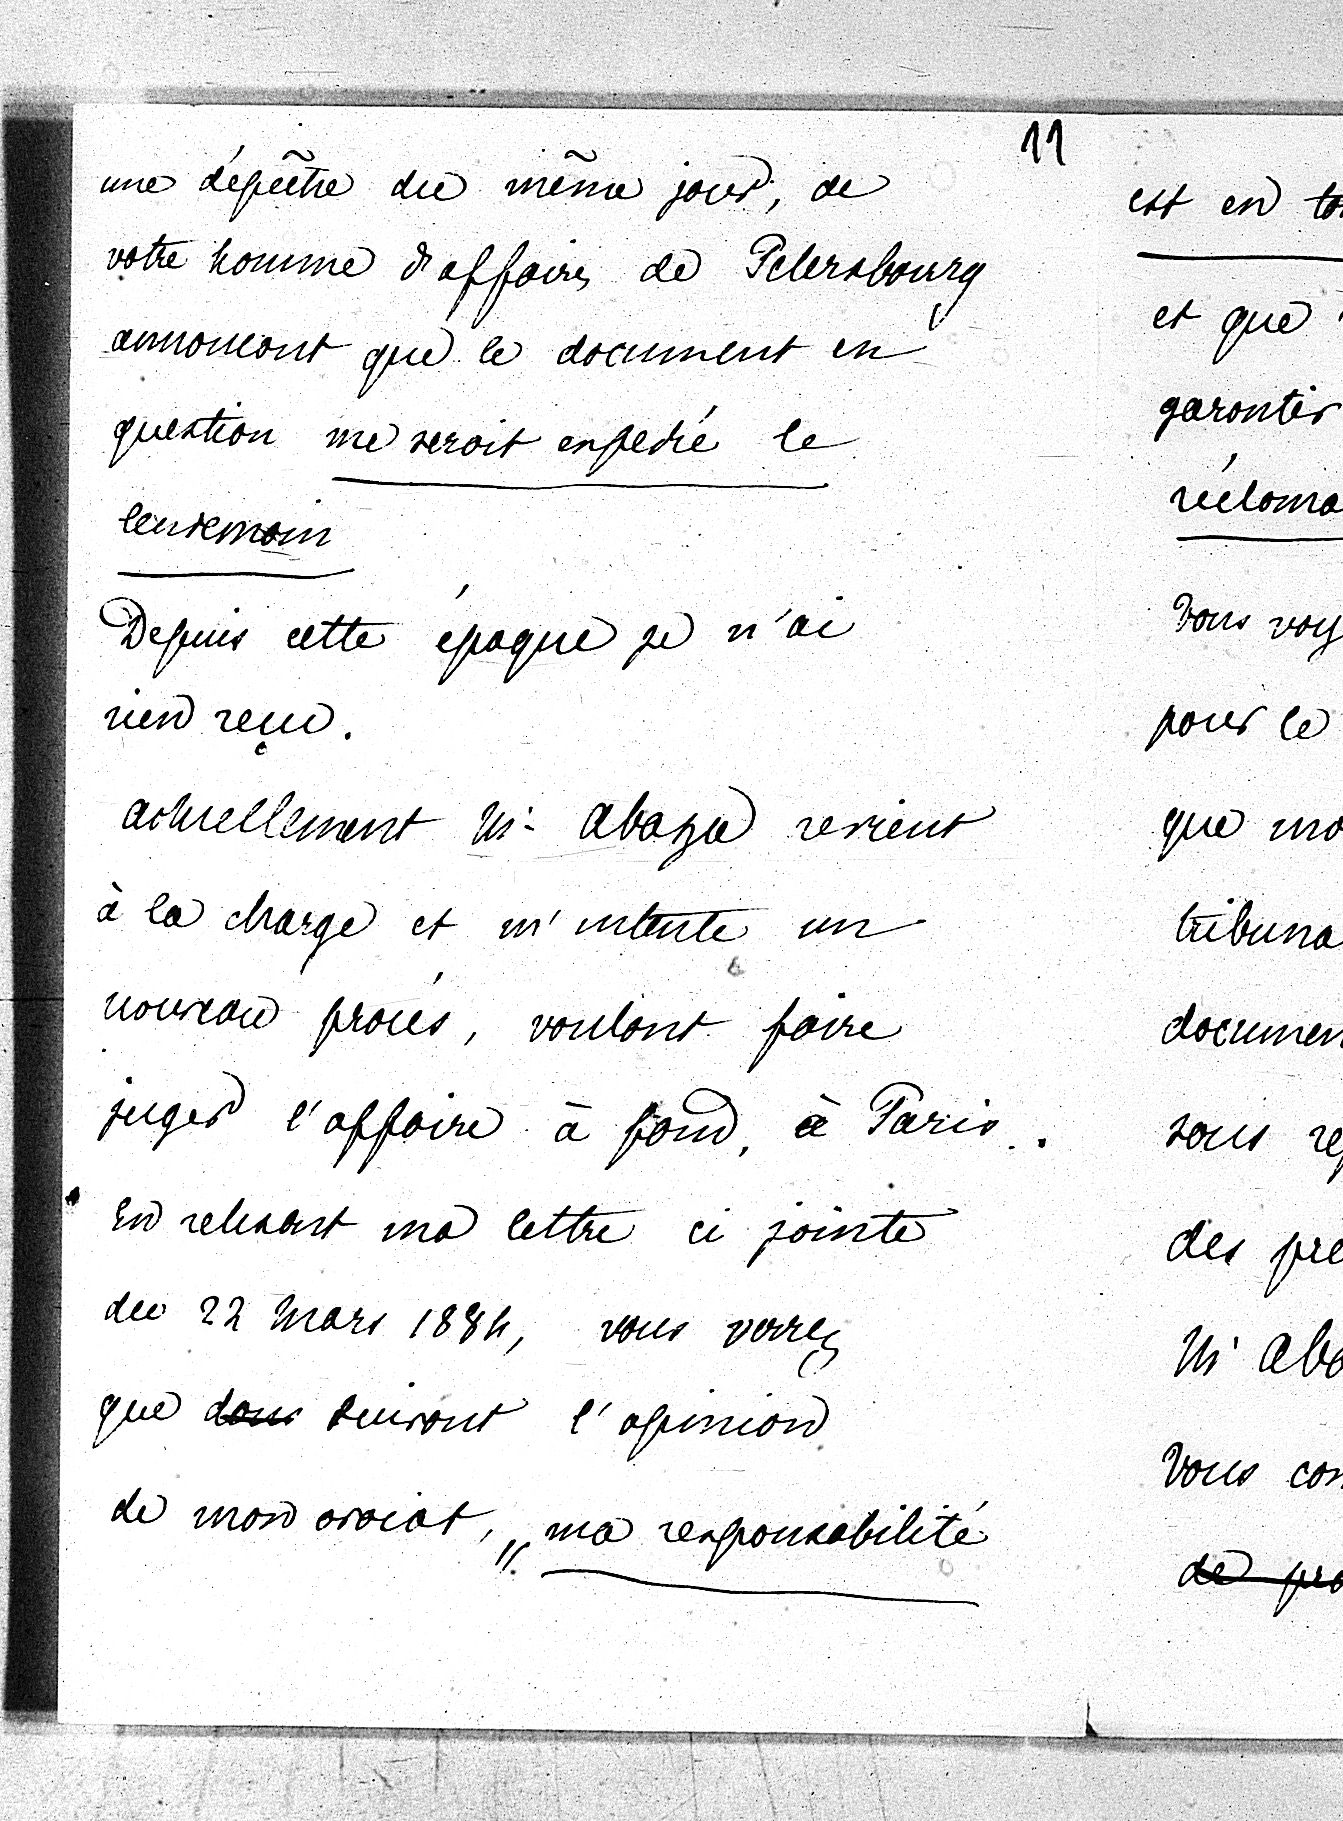 11
une dépêche du même jour, de
votre homme d'affaires de Petersbourg
annoncant que le document en
question me serait expedié le
lendemain
Depuis cette époque je n'ai
rien reçu.
actuellement Mr Abaza revient
à la charge et m'intente un
nouveau procés, voulant faire
juger l'affaire à fond, à Paris.
En relisant ma lettre ci jointe
du 22 Mars 1884, vous verrez
que dans suivant l'opinion
de mon avocat, "ma responsabilité
est en to
et que
garantir
réclama
Vous voy
pour le
que mo
tribuna
documen
sous re
des pre
Mr Aba
Vous con
de pro